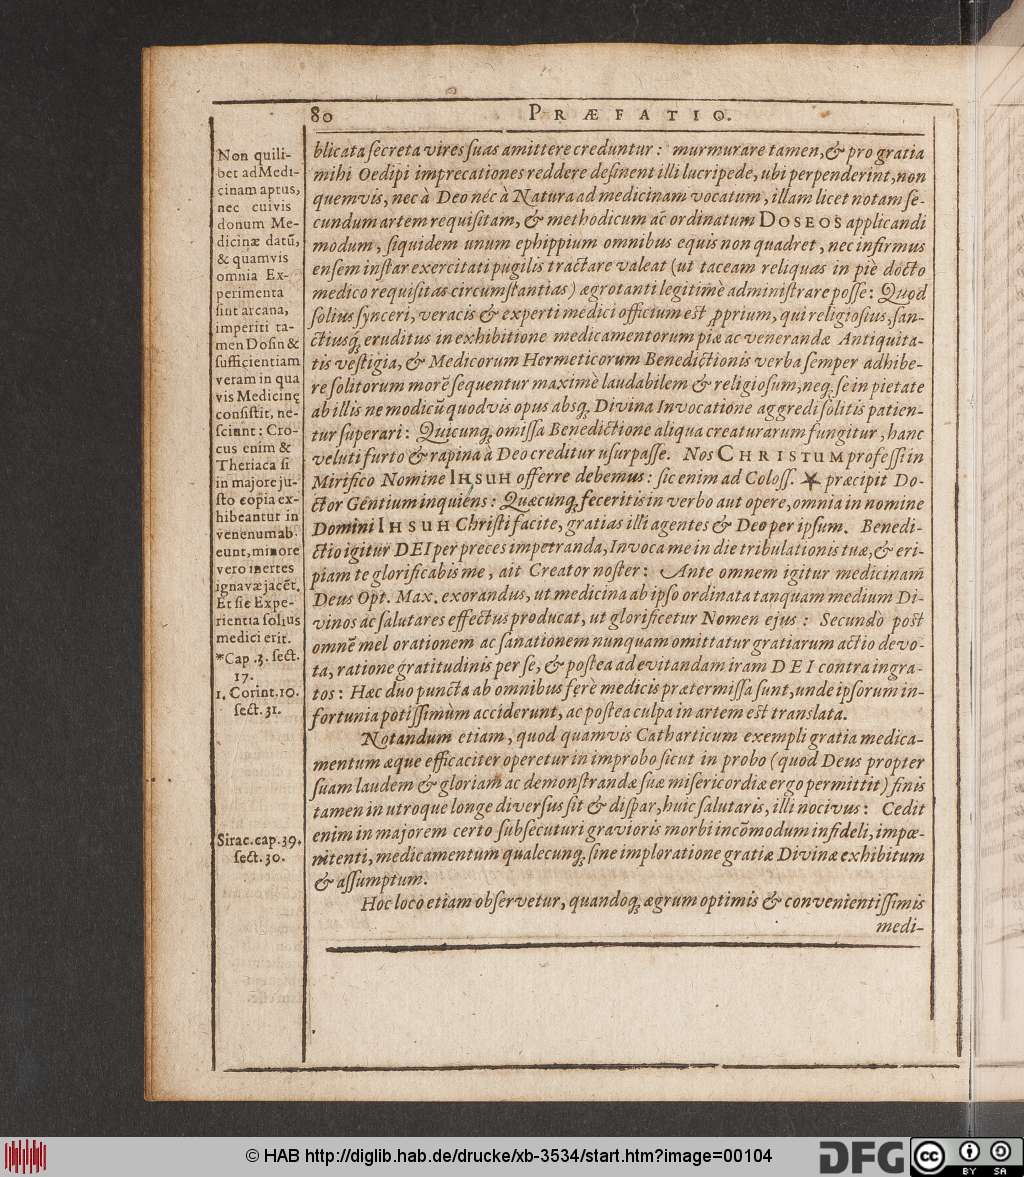 80 PRÆFATIO.
Non quili-
bet ad Medi-
cinam aptus,
nec cuivis
donum Me-
dicinæ datũ,
& quamvis
omnia Ex-
perimenta
sint arcana,
imperiti ta-
men Dosin &
sufficientiam
veram in qua
vis Medicinę
consistit, ne-
sciunt: Cro-
cus enim &
Theriaca si
in majore ju-
sto copia ex-
hibeantur in
venenum ab-
eunt, minore
vero inertes
ignavæ jacẽt.
Et sic Expe-
rientia solius
medici erit.
*Cap .3. sect.
17.
1. Corint. 10.
sect. 31.
Sirac. cap. 39.
sect. 30.
blicata secreta vires suas amittere creduntur: murmurare tamen, & pro gratia
mihi Oedipi imprecationes reddere desinent illi lucripede, ubi perpenderint, non
quemvis, nec à Deo nec à Natura ad medicinam vocatum, illam licet notam se-
cundum artem requisitam, & methodicum ac ordinatum DOSEOS applicandi
modum, siquidem unum ephippium omnibus equis non quadret, nec infirmus
ensem instar exercitati pugilis tractare valeat (ut taceam reliquas in piè docto
medico requisitas circumstantias) ægrotanti legitimè administrare posse: Quod
solius synceri, veracis & experti medici officium est ꝓprium, qui religiosius, san-
ctiusq́; eruditus in exhibitione medicamentorum piæ ac venerandæ Antiquita-
tis vestigia, & Medicorum Hermeticorum Benedictionis verba semper adhibe-
re solitorum morẽ sequentur maximè laudabilem & religiosum, neq; se in pietate
ab illis ne modicũ quodvis opus absq; Divina Invocatione aggredi solitis patien-
tur superari: Quicunq; omissa Benedictione aliqua creaturarum fungitur, hanc
veluti furto & rapina à Deo creditur usurpasse. Nos CHRISTUM professi in
Mirifico Nomine IHSUH offerre debemus: sic enim ad Coloss. * præcipit Do-
ctor Gentium inquiens: Quæcunq; feceritis in verbo aut opere, omnia in nomine
Domini IHSUH Christi facite, gratias illi agentes & Deo per ipsum. Benedi-
ctio igitur DEI per preces impetranda, Invoca me in die tribulationis tuæ, & eri-
piam te glorificabis me, ait Creator noster: Ante omnem igitur medicinam
Deus Opt. Max. exorandus, ut medicina ab ipso ordinata tanquam medium Di-
vinos ac salutares effectus producat, ut glorificetur Nomen ejus: Secundò post
omnẽ mel orationem ac sanationem nunquam omittatur gratiarum actio devo-
ta, ratione gratitudinis per se, & postea ad evitandam iram DEI contra ingra-
tos: Hæc duo puncta ab omnibus ferè medicis prætermissa sunt, unde ipsorum in-
fortunia potissimùm acciderunt, ac postea culpa in artem est translata.
Notandum etiam, quod quamvis Catharticum exempli gratia medica-
mentum æque efficaciter operetur in improbo sicut in probo (quod Deus propter
suam laudem & gloriam ac demonstrandæ suæ misericordiæ ergo permittit) finis
tamen in utroque longe diversus sit & dispar, huic salutaris, illi nocivus: Cedit
enim in majorem certo subsecuturi gravioris morbi incõmodum infideli, impæ-
nitenti, medicamentum qualecunq; sine imploratione gratiæ Divinæ exhibitum
& assumptum.
Hoc loco etiam observetur, quandoq; ægrum optimis & convenientissimis
medi-
© HAB http://diglib.hab.de/drucke/xb-3534/start.htm?image=00104
DFG
cc BY SA